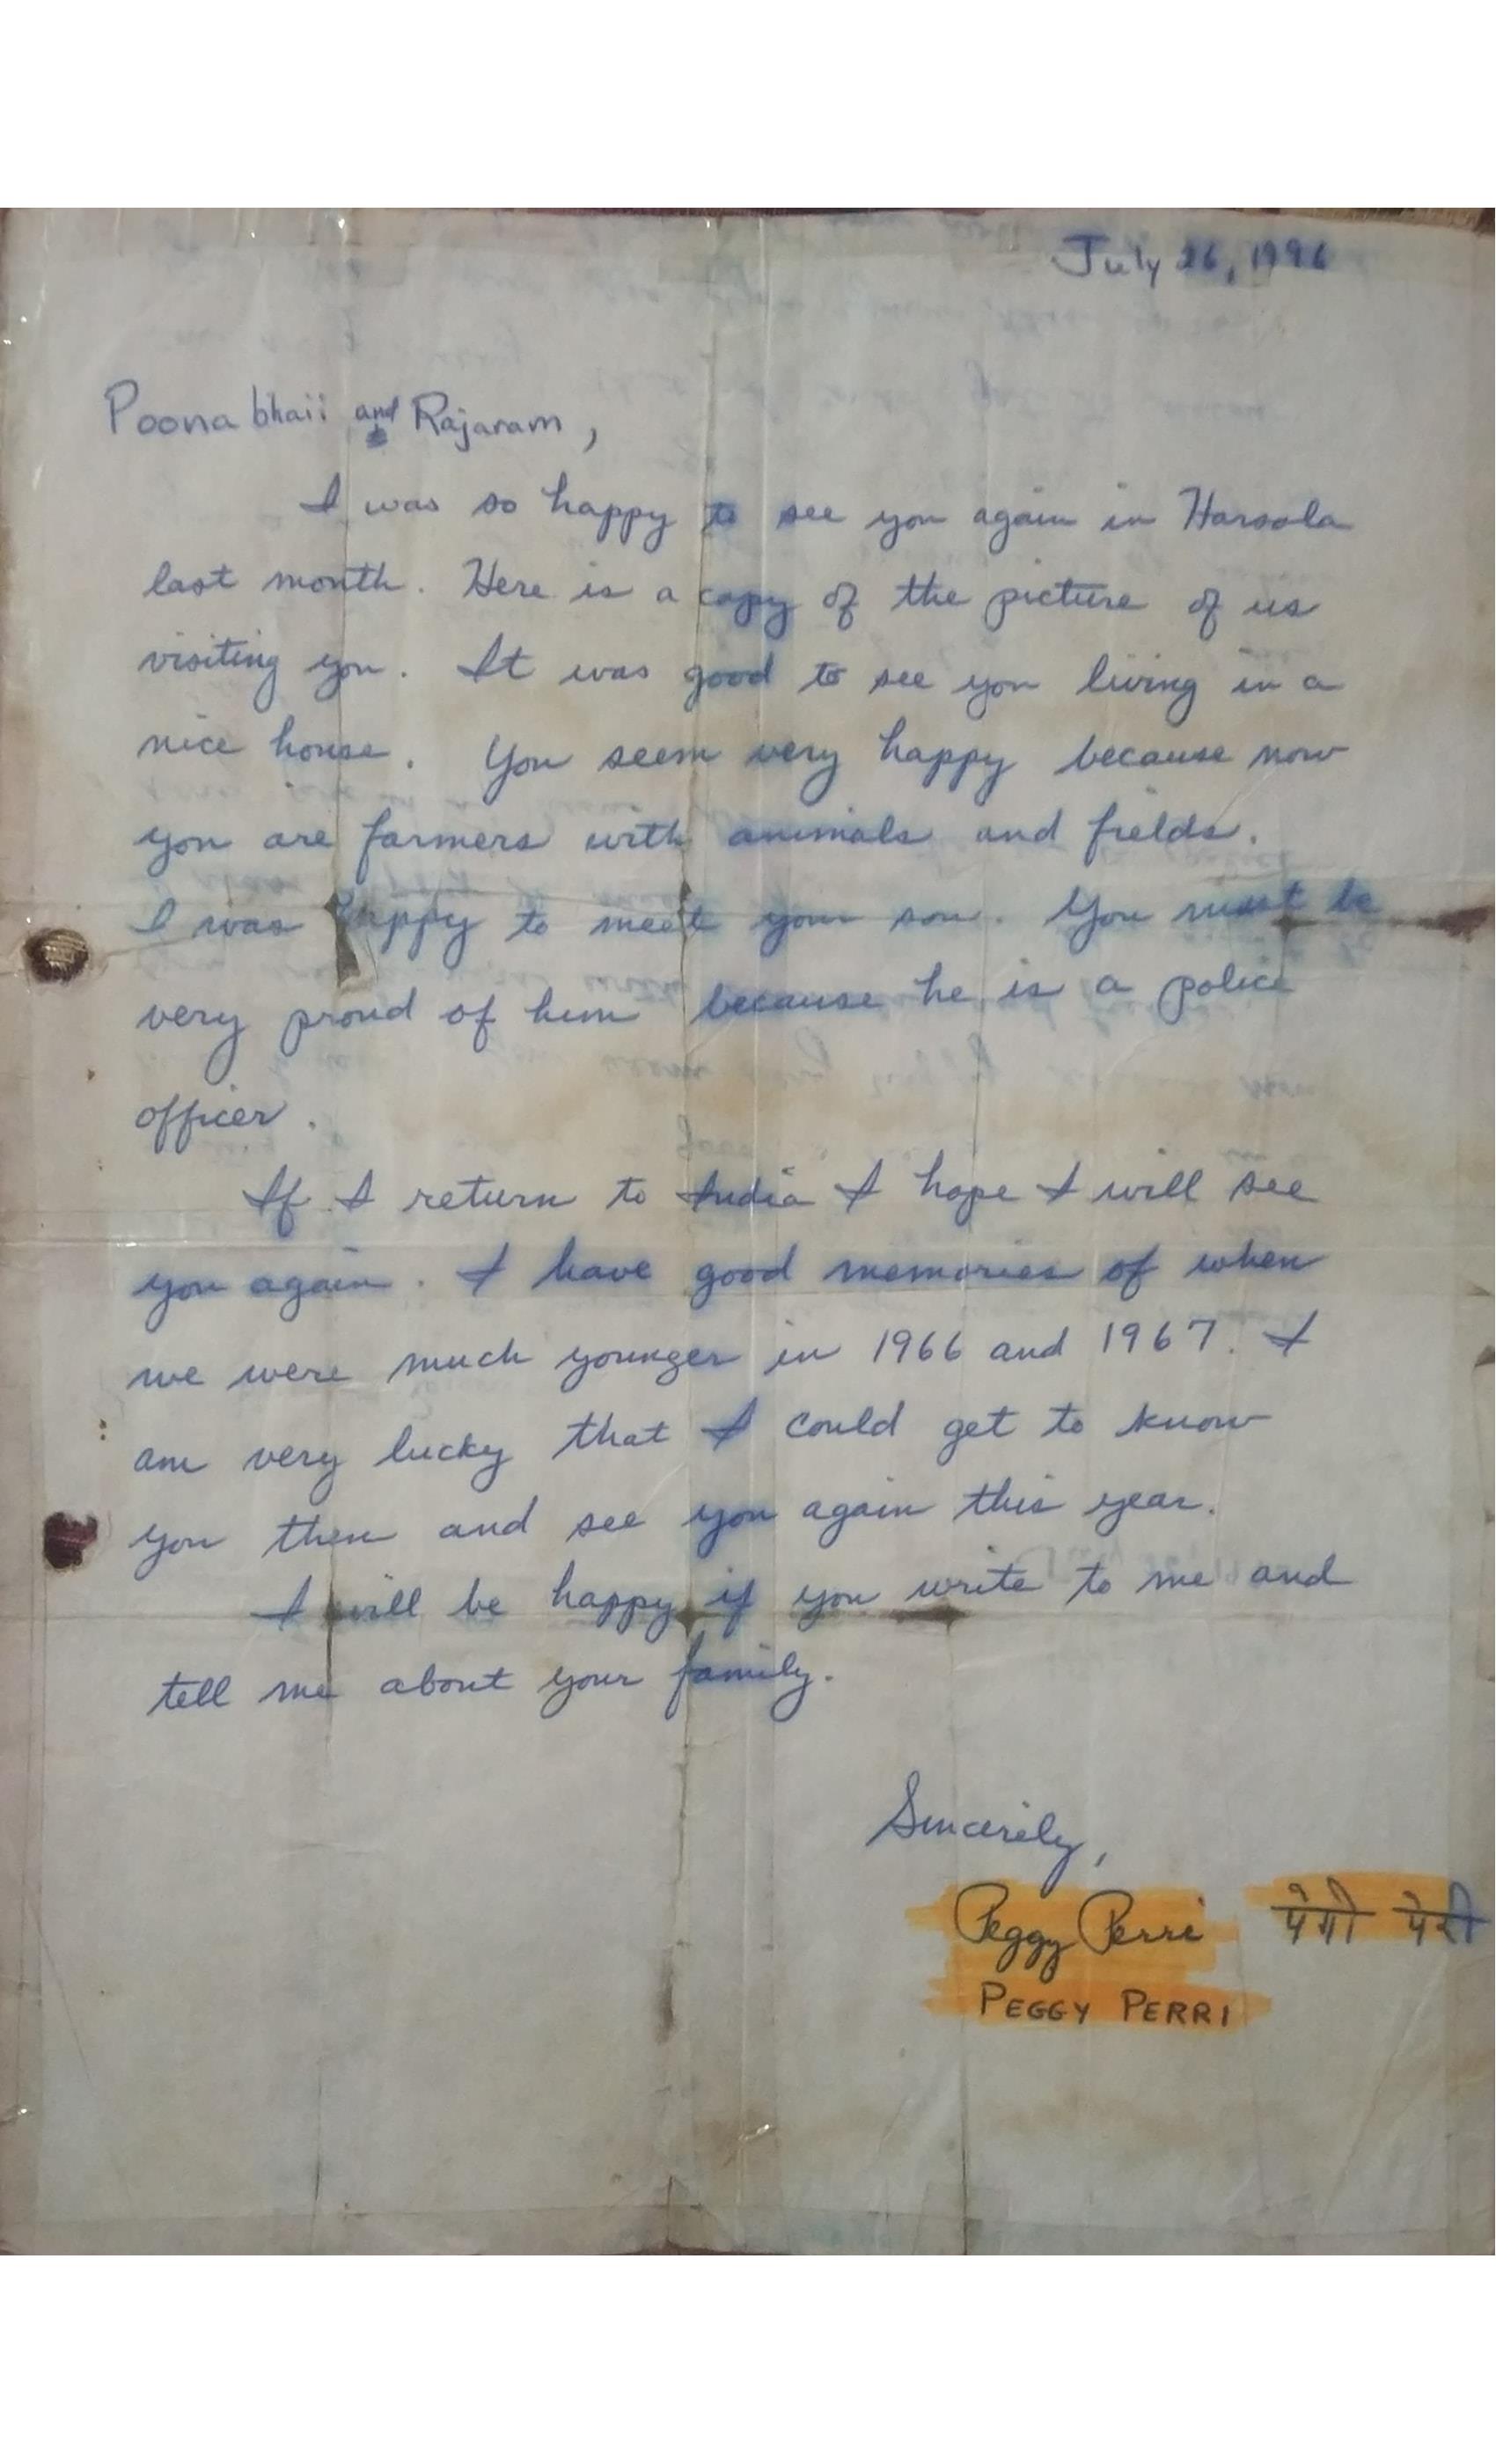 July 26, 1996
Poona bhaii and Rajaram,
I was so happy to see you again in Harsola
last month. Here is a copy of the picture of us
visiting you. It was good to see you living in a
nice house. You seem very happy because now
you are farmers with animals and fields.
I was happy to meet your son. You must be
very proud of him because he is a police
officer.
If I return to India I hope I will see
you again. I have good memories of when
we were much younger in 1966 and 1967. I
am very lucky that I could get to know
you then and see you again this year.
I will be happy if you write to me and
tell me about your family.
Sincerely,
Peggy Perri पेगी पेरी
PEGGY PERRI